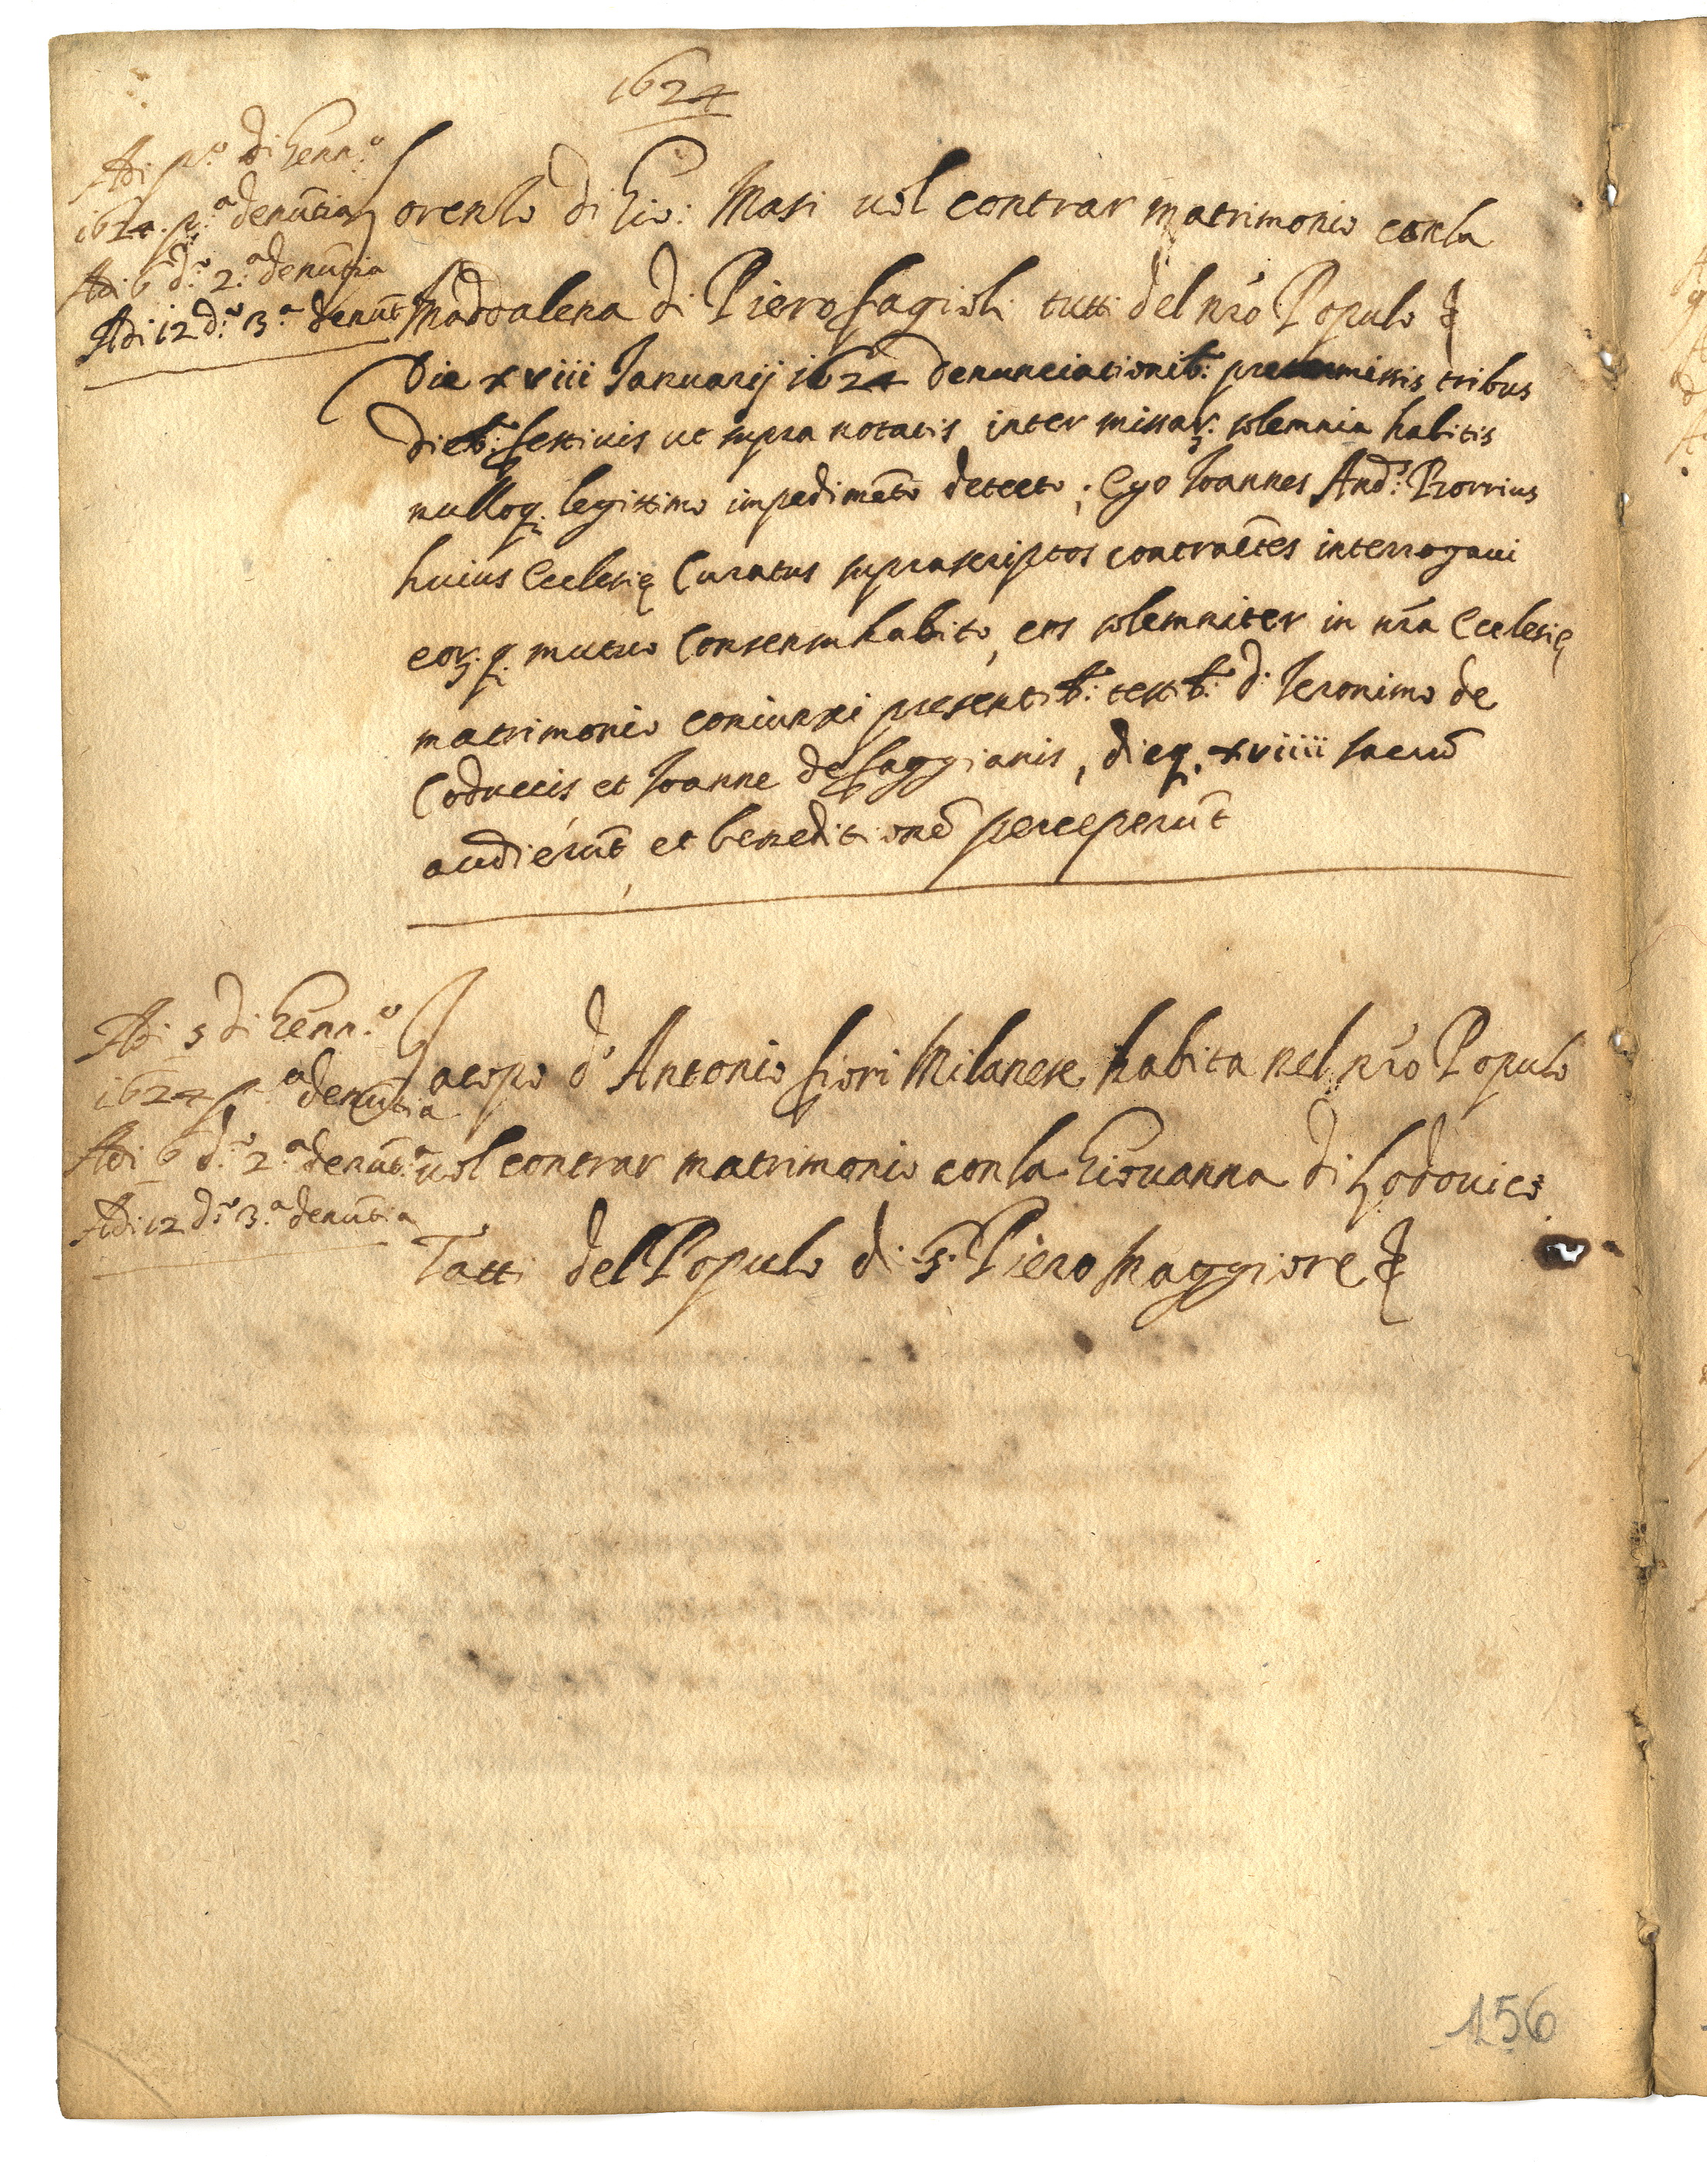 1624
Adi p.º di Genn.º
1624. p.ª denũtia
Adi 6 d.º 2.ª denũtia
Adi 12 d.º 3.ª denũt
Lorenzo di Gio: Masi uol contrar matrimonio con la
Maddalena di Piero fagioli tutti del nr̃o Populo &
Die xviii Januarij 1624 denunciationib: premissis tribus
dieb: festiuis ut supra notatis inter missar: solemnia habitis
nulloq; legittimo impedimẽto detecto; Ego Joannes And:
huius Ecclesię Curatus suprascriptos contraẽtes interrogaui
eor: q; mutuo consensu habito, eos solemniter in nr̃a Ecclesię
matrimonio coniunxi presentib: testib: d: Jeronimo de
Coduccis et Joanne de faggianis, dieq; xviiii sacrũ
audierũt, et beneditionẽ perceperũt
Adi 5 di Genn.º
1624 p.ª denũtia
Adi 6 d.º 2.ª denũt.ª
Adi 12 d.º 3.ª denũtia
Jacopo d'Antonio fiori Milanese habita nel nr̃o Populo
uol contrar matrimonio con la Giouanna di Lodouico
Tatti del Populo di S. Piero Maggiore &
156